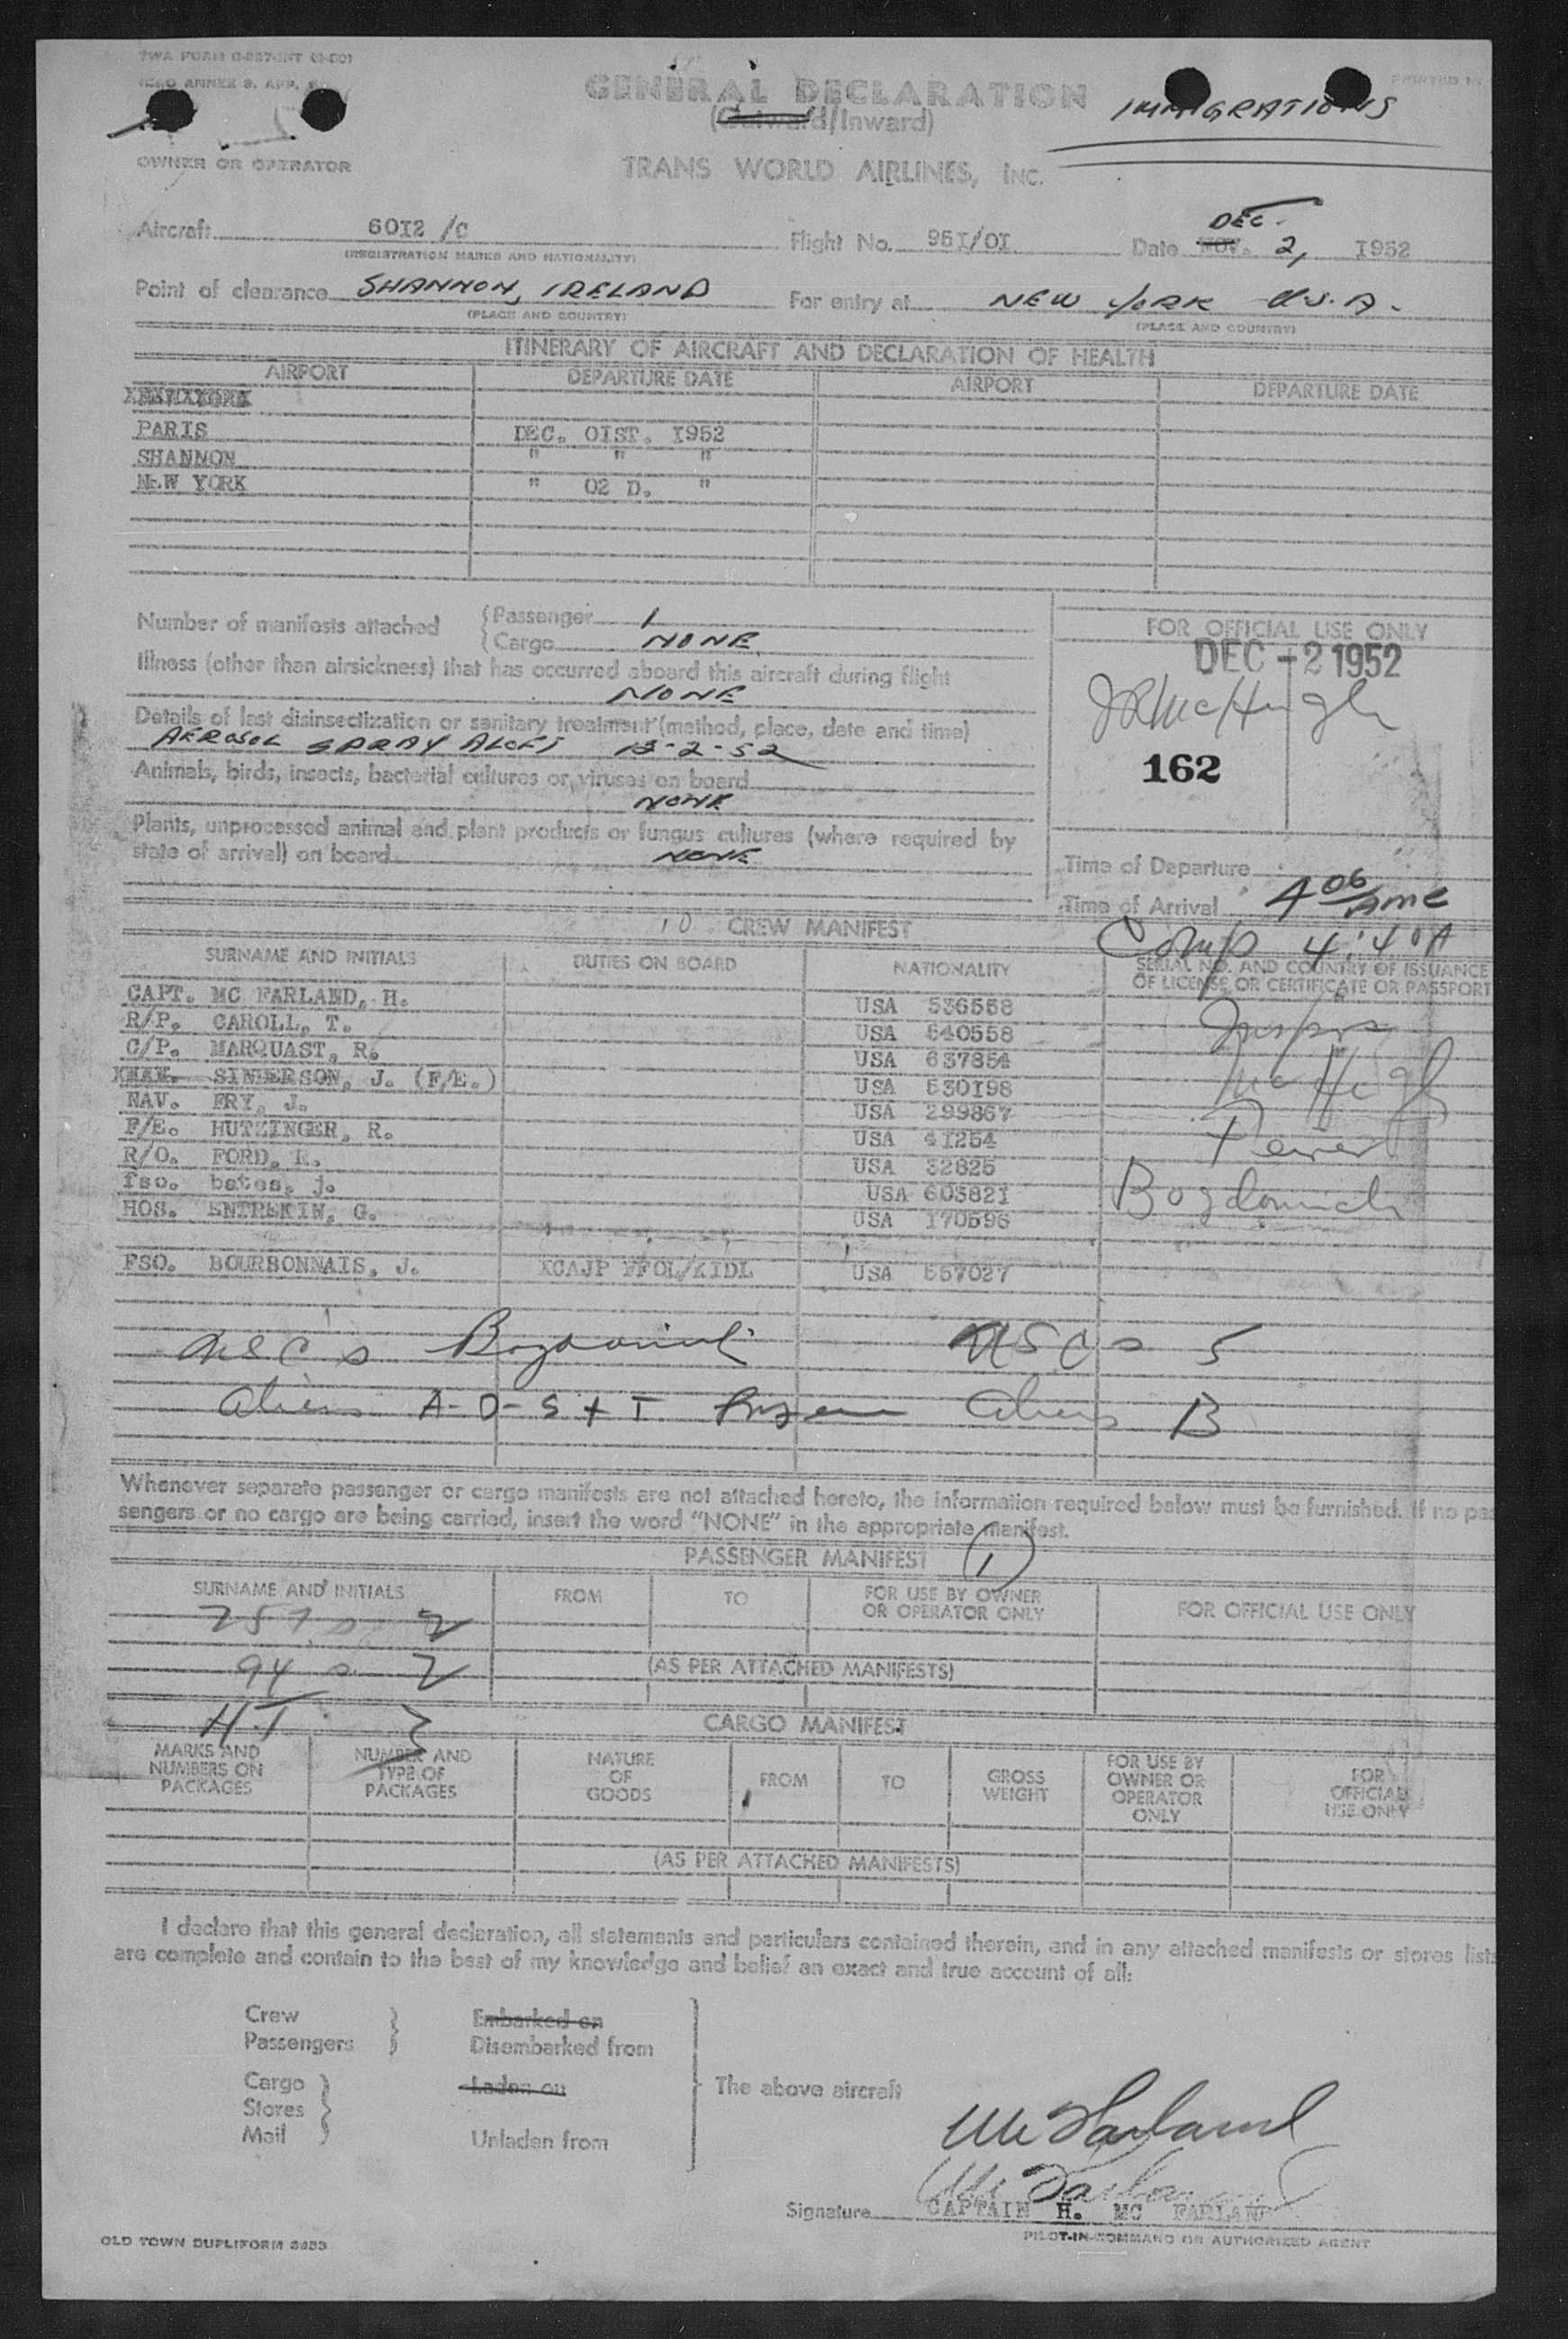 TWA FORM
ICAO ANNEX 9, APP.
GENERAL DECLARATION
(Outward/Inward)
IMMIGRATIONS
OWNER OR OPERATOR
TRANS WORLD AIRLINES, INC.
DEC.
Aircraft 60I2 /C Flight No. 95I/0I Date NOV. 2, I952
(REGISTRATION MARKS AND NATIONALITY)
Point of clearance SHANNON, IRELAND For entry at NEW YORK U.S.A.
(PLACE AND COUNTRY) (PLACE AND COUNTRY)
ITINERARY OF AIRCRAFT AND DECLARATION OF HEALTH
AIRPORT DEPARTURE DATE AIRPORT DEPARTURE DATE
PARIS DEC. 0IST. I952
SHANNON " " "
NEW YORK " 02 D. "
Number of manifests attached { Passenger 1
{ Cargo NONE
FOR OFFICIAL USE ONLY
DEC -2 1952
Illness (other than airsickness) that has occurred aboard this aircraft during flight
NONE
JRMcHugh
Details of last disinsectization or sanitary treatment (method, place, date and time)
AEROSOL SPRAY ALOFT 12-2-52
162
Animals, birds, insects, bacterial cultures or viruses on board
NONE
Plants, unprocessed animal and plant products or fungus cultures (where required by
state of arrival) on board NONE
Time of Departure
Time of Arrival 4 06
10 CREW MANIFEST
Comp 4:40A
SURNAME AND INITIALS DUTIES ON BOARD NATIONALITY SERIAL NO. AND COUNTRY OF ISSUANCE
OF LICENSE OR CERTIFICATE OR PASSPORT
CAPT. MC FARLAND, H. USA 536558
R/P. CAROLL, T. USA 540558
C/P. MARQUAST, R. USA 637854
SINDERSON, J. (F/E.) USA 530198
NAV. FRY, J. USA 299867
F/E. HUTZINGER, R. USA 4I254
R/O. FORD, R. USA 32825
fso. bates, j. USA 60582I
HOS. ENTREKIN, G. USA I70596
Insprs
McHugh
Bogdanich
FSO. BOURBONNAIS, J. XCAJP FFOL/KIDL USA 557027
USC's Bogdanich USCs 5
Aliens A-D-S+T Aliens B
Whenever separate passenger or cargo manifests are not attached hereto, the information required below must be furnished. If no pas
sengers or no cargo are being carried, insert the word "NONE" in the appropriate manifest.
PASSENGER MANIFEST (1)
SURNAME AND INITIALS FROM TO FOR USE BY OWNER
OR OPERATOR ONLY FOR OFFICIAL USE ONLY
257s 2
94s 2
(AS PER ATTACHED MANIFESTS)
H.T. 3
CARGO MANIFEST
MARKS AND
NUMBERS ON
PACKAGES NUMBER AND
TYPE OF
PACKAGES NATURE
OF
GOODS FROM TO GROSS
WEIGHT FOR USE BY
OWNER OR
OPERATOR
ONLY FOR
OFFICIAL
USE ONLY
(AS PER ATTACHED MANIFESTS)
I declare that this general declaration, all statements and particulars contained therein, and in any attached manifests or stores lists
are complete and contain to the best of my knowledge and belief an exact and true account of all:
Crew Embarked on
Passengers Disembarked from
Cargo Laden on The above aircraft
Stores
Mail Unladen from
McFarland
McFarland
Signature CAPTAIN H. MC FARLAND
PILOT-IN-COMMAND OR AUTHORIZED AGENT
OLD TOWN DUPLIFORM